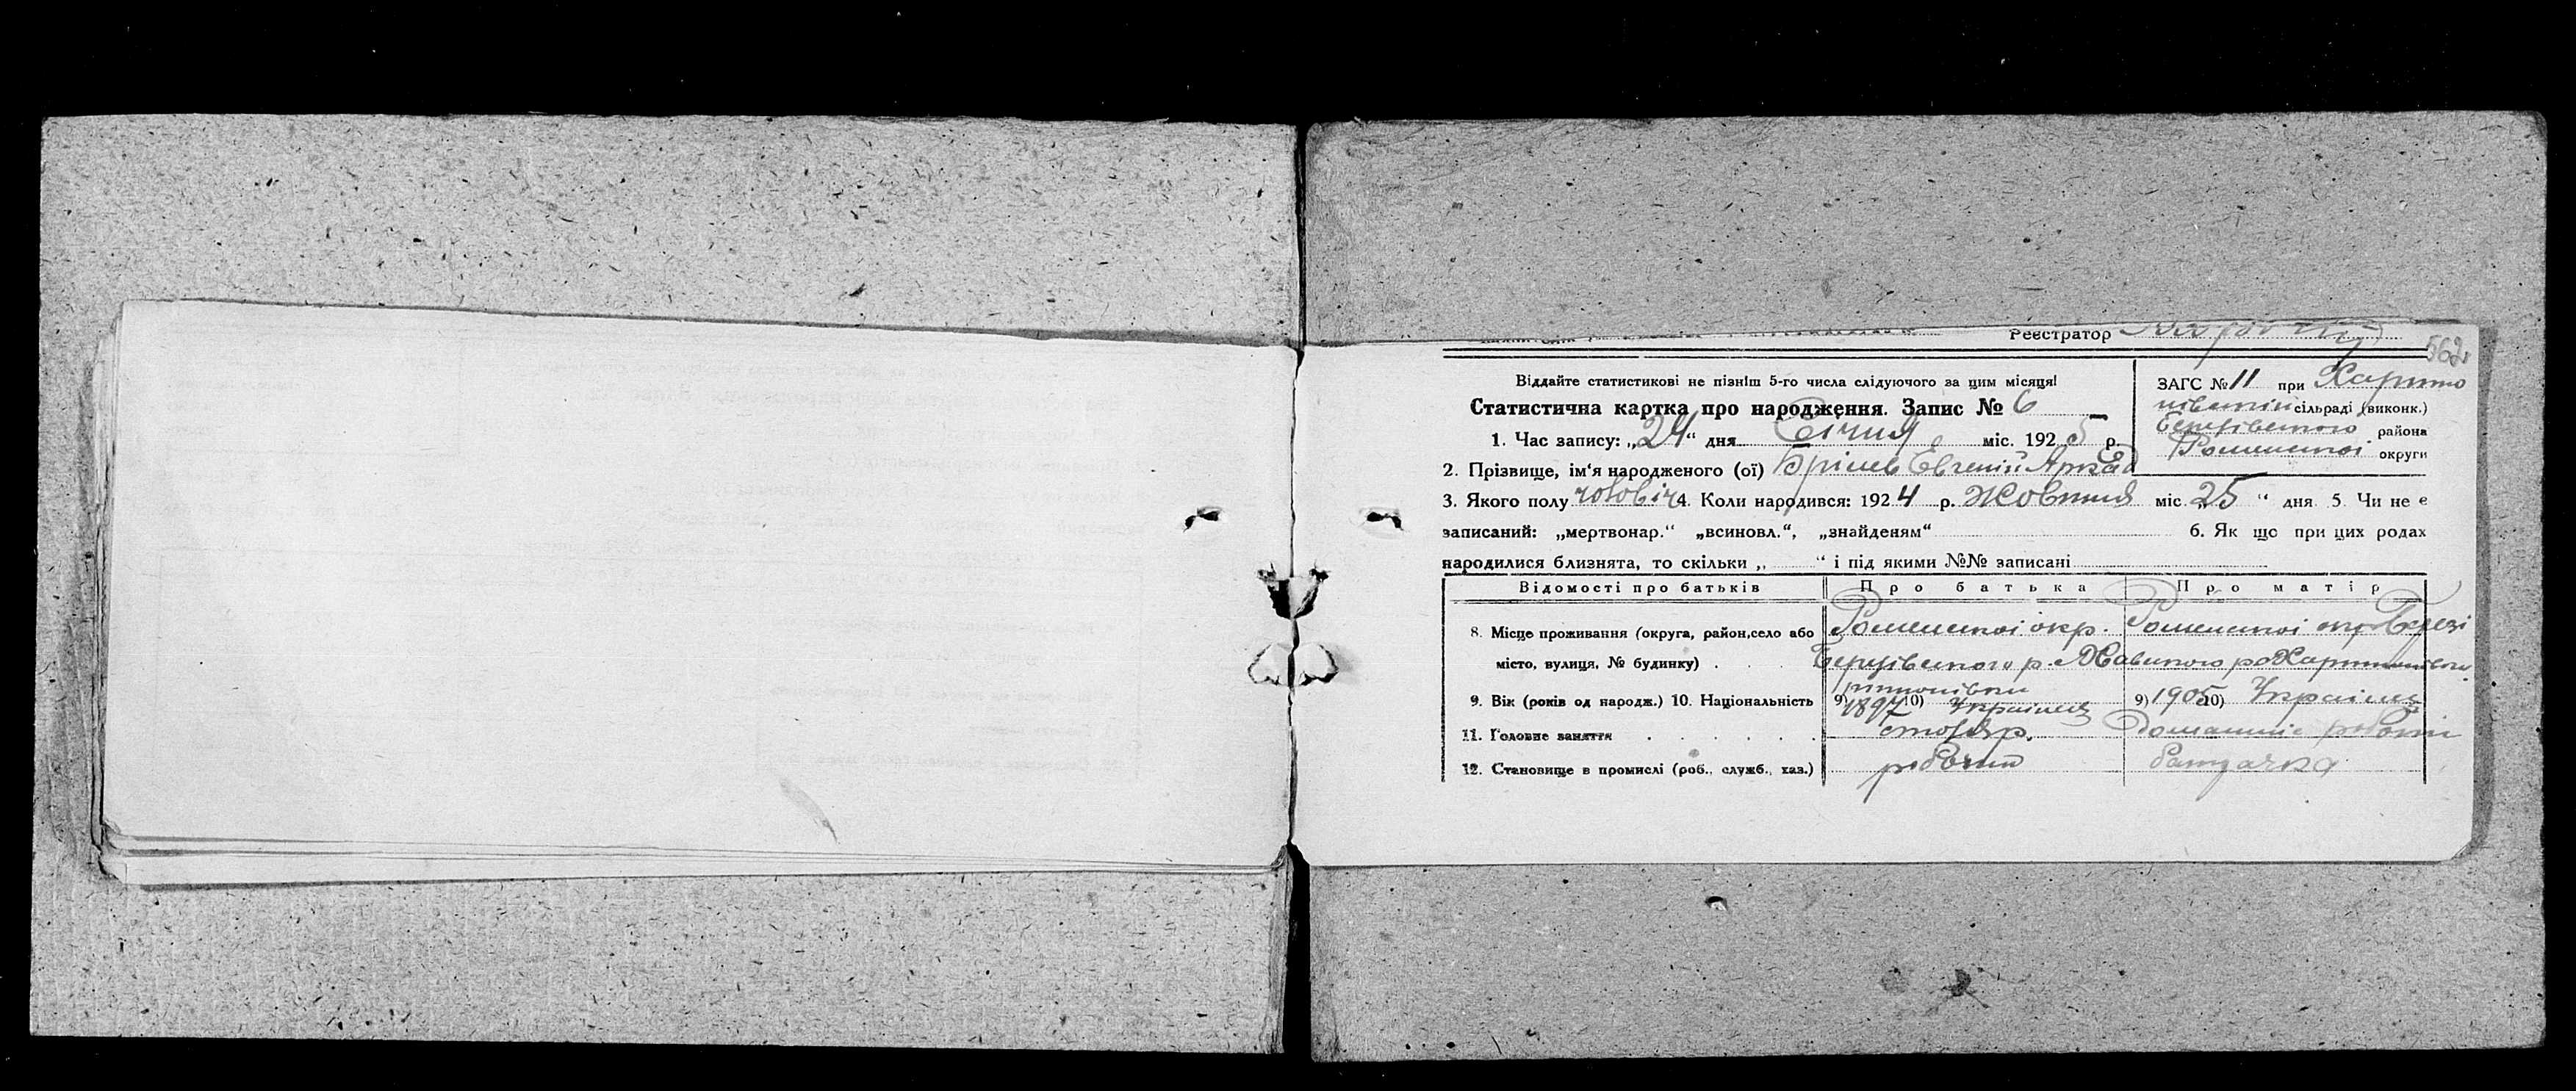 Реєстратор
562
Віддайте статистикові не пізніш 5-го числа слідуючого за цим місяця!
Статистична картка про народження. Запис № 6
1. Час запису: „24“ дня Січня міс. 1925 р.
2. Прізвище, ім'я народженого (ої) Брілев Евгеній Аркад
3. Якого полу чоловіч 4. Коли народився: 1924 р. Жовтня міс. „25“ дня 5. Чи не є
записаний: „мертвонар.“ „всиновл.“, „знайденям“ 6. Як що при цих родах
народилися близнята, то скільки „ “ і під якими №№ записані
ЗАГС № 11 при Харито
нівській сільраді (виконк.)
Березівського района
Роменської округи
Відомості про батьків Про батька Про матір
8. Місце проживання (округа, район, село або Роменської окр. Роменської окр Березі
місто, вулиця, № будинку) Березівського р.
9. Вік (років од народж.) 10. Національність 9) 1897 10) Українец 9) 1905 10) Украінец
11. Головне заняття столяр. Домашніе роботи
12. Становище в промислі (роб., служб., хаз.) робочий